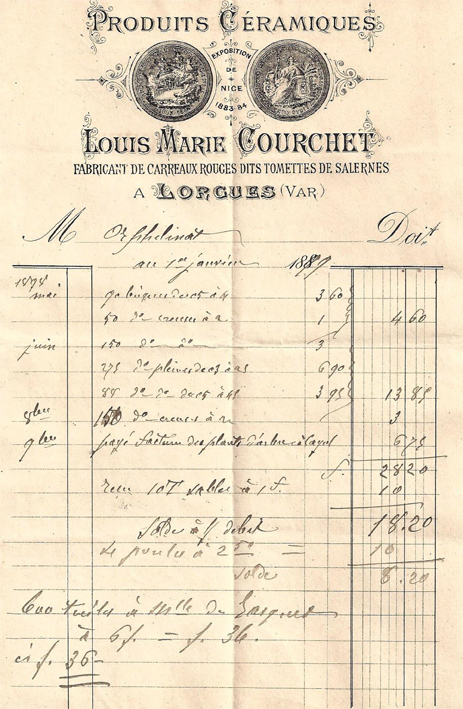 PRODUITS CÉRAMIQUES
EXPOSITION
DE
NICE
1883-84
LOUIS MARIE COURCHET
FABRICANT DE CARREAUX ROUGES DITS TOMETTES DE SALERNES
A LORGUES (VAR)
M Orphelinat Doit
au 1er janvier 1899
1898
mai 90 à 4 3 60
50 do creuses à 2 1 4 60
juin 150 do do 3
275 do pleines de 6 90
88 do do de 3 95 13 85
8bre 150 do creuses à 2 3
9bre payé facture des plants d'arbre à 6 75
f. 28 20
10 T sables à 1 f. 10
Solde à débit 18.20
à 2 50 = 10
Solde 8.20
600 tuiles à de
à 6 f. = f. 36.
ci f. 36